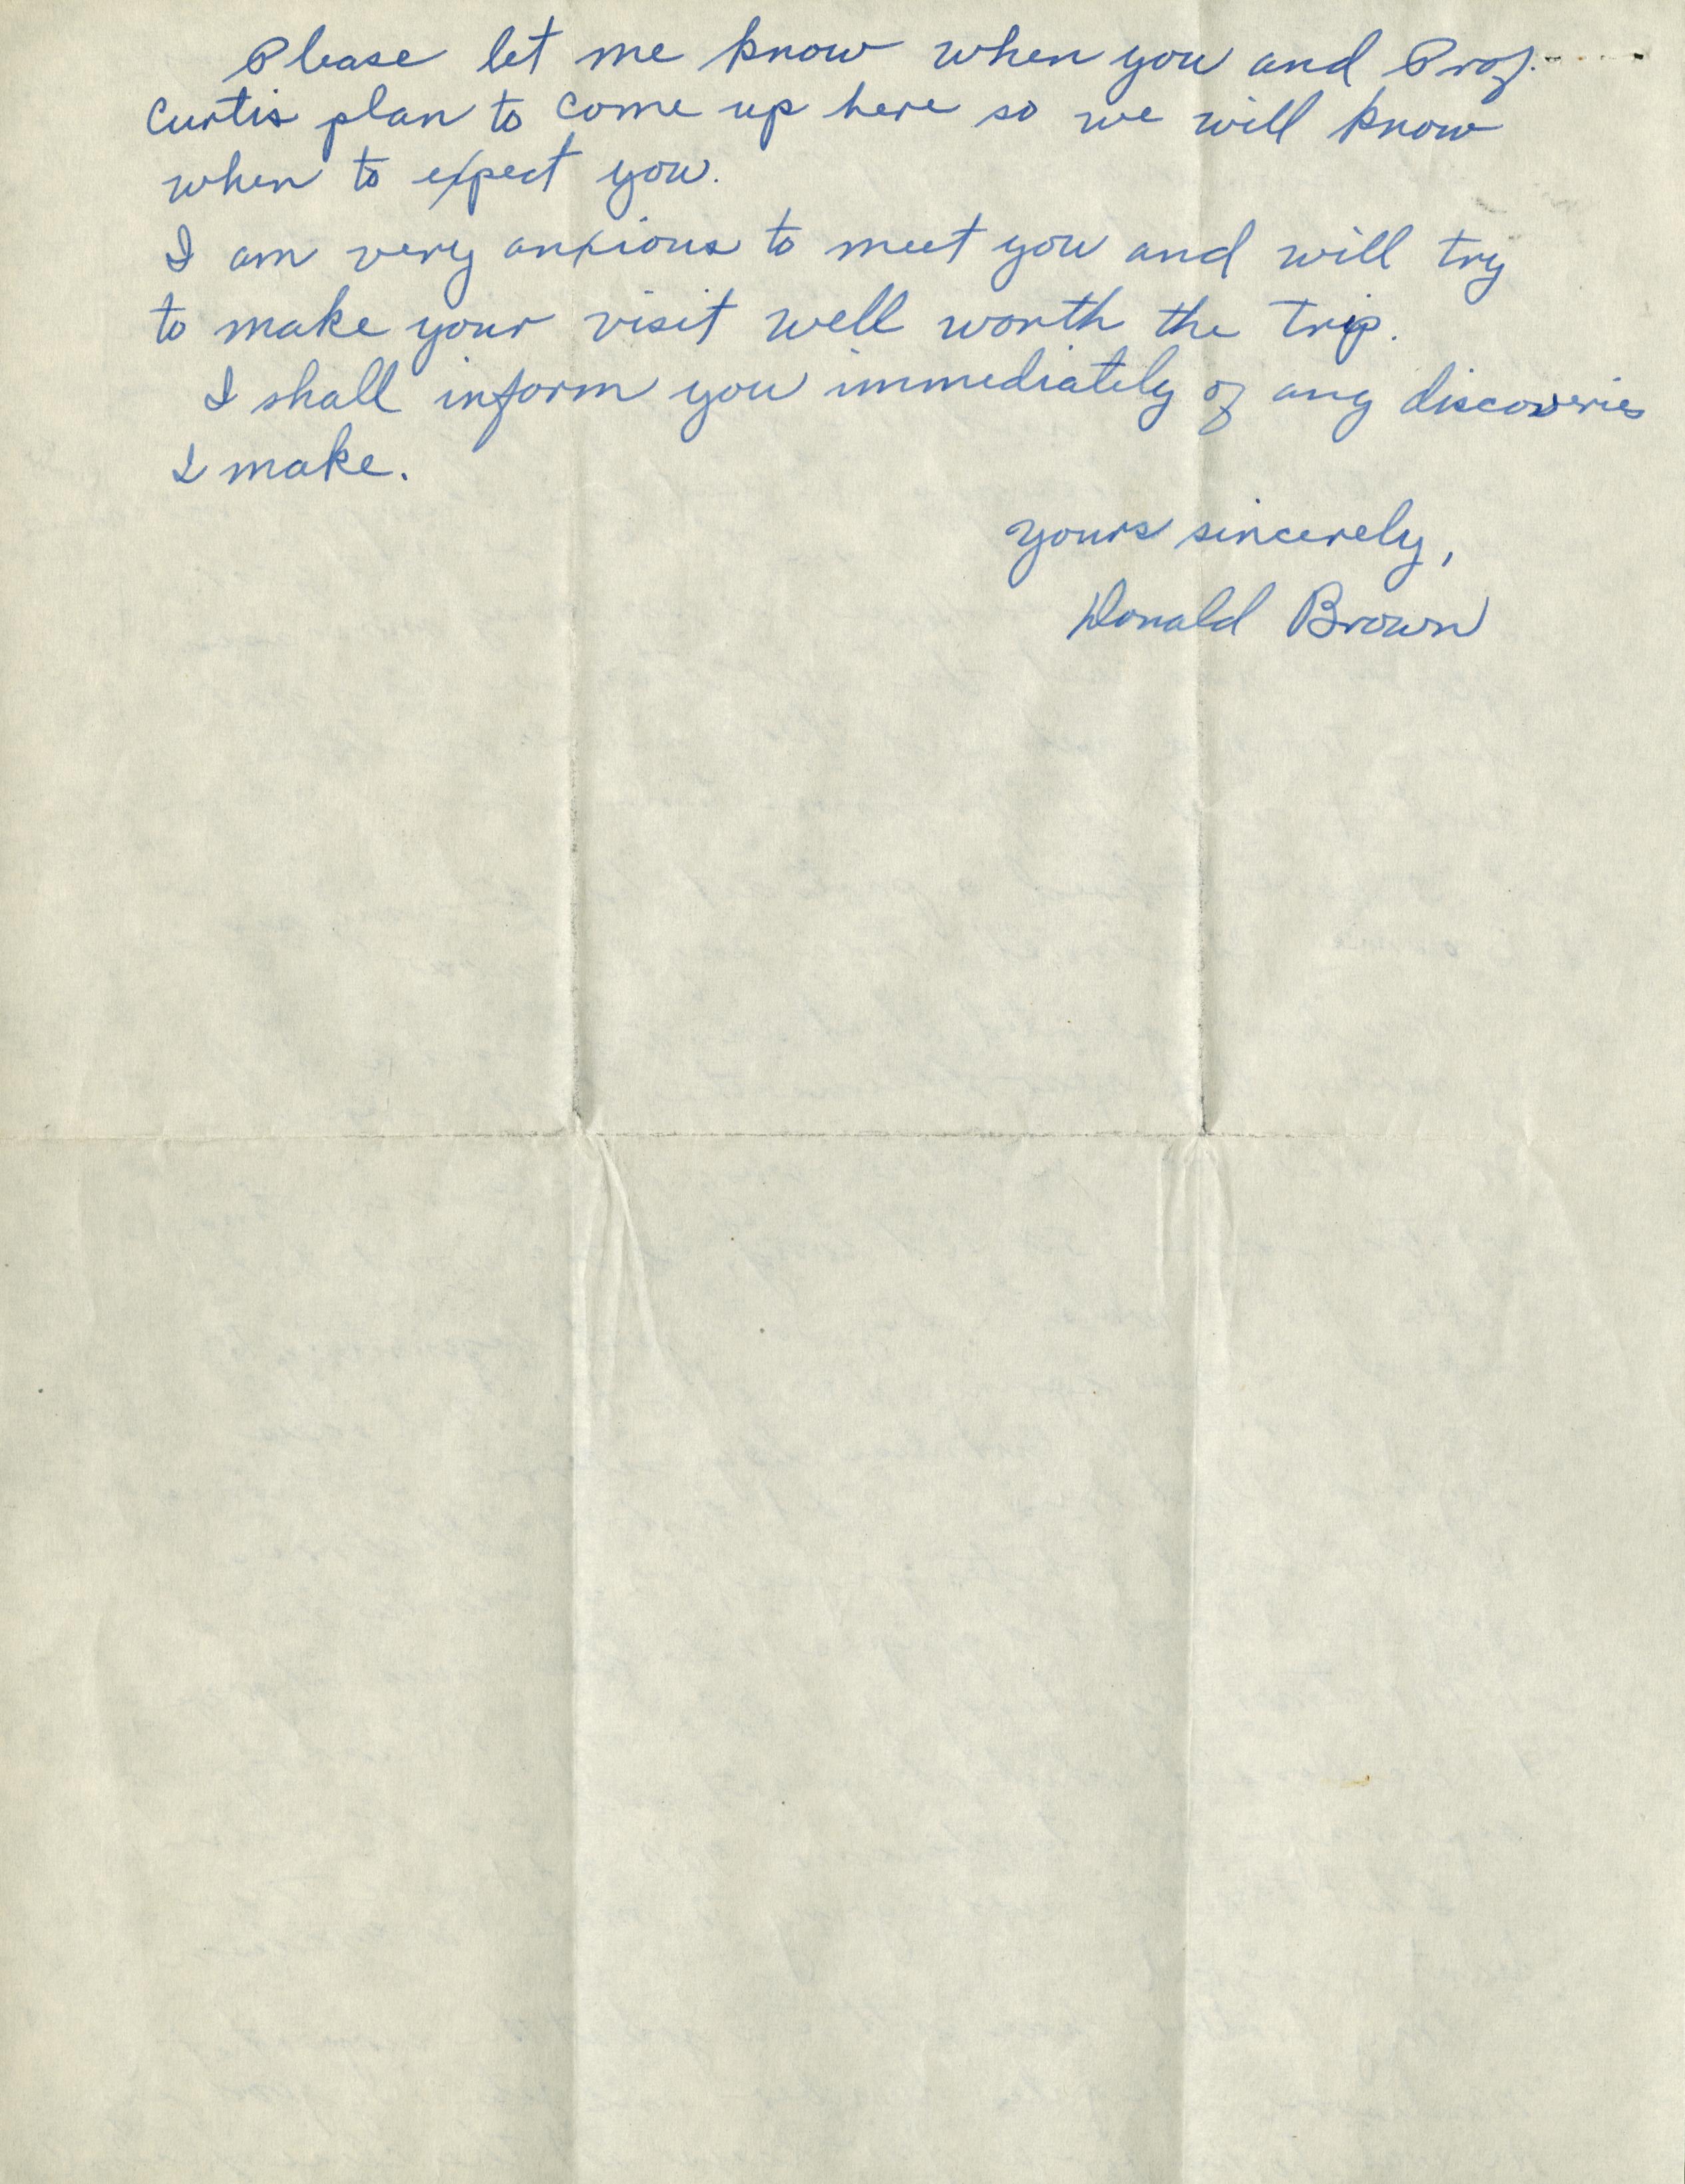 Please let me know when you and Prof.
Curtis plan to come up here so we will know
when to expect you.
I am very anxious to meet you and will try
to make your visit well worth the trip.
I shall inform you immediately of any discoveries
I make.
Yours sincerely,
Donald Brown